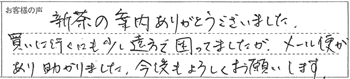 お客様の声
新茶の案内ありがとうございました。
買いに行くにも少し遠方で困ってましたが、メール便が
あり助かりました。今後もよろしくお願いします。